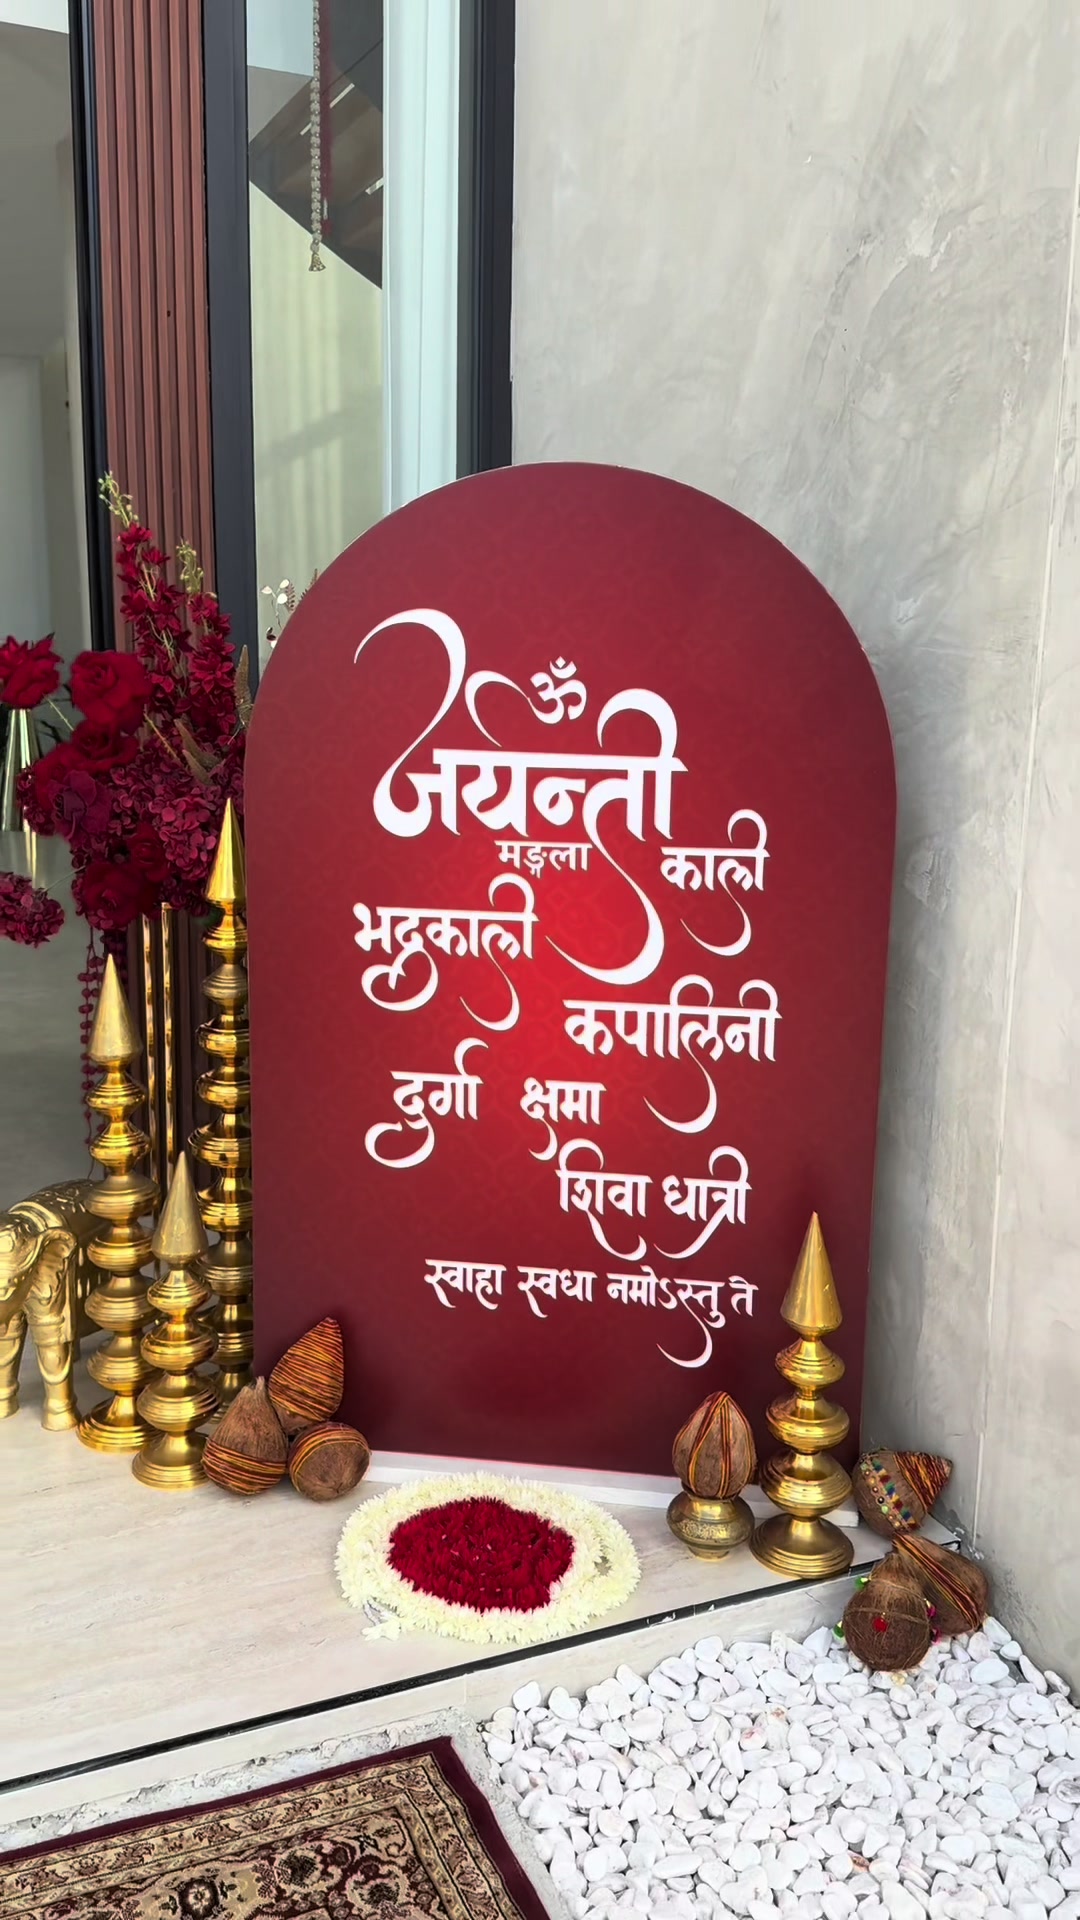 ॐ
जयन्ती
मङ्गला काली
भद्रकाली
कपालिनी
दुर्गा क्षमा
शिवा धात्री
स्वाहा स्वधा नमोऽस्तु ते